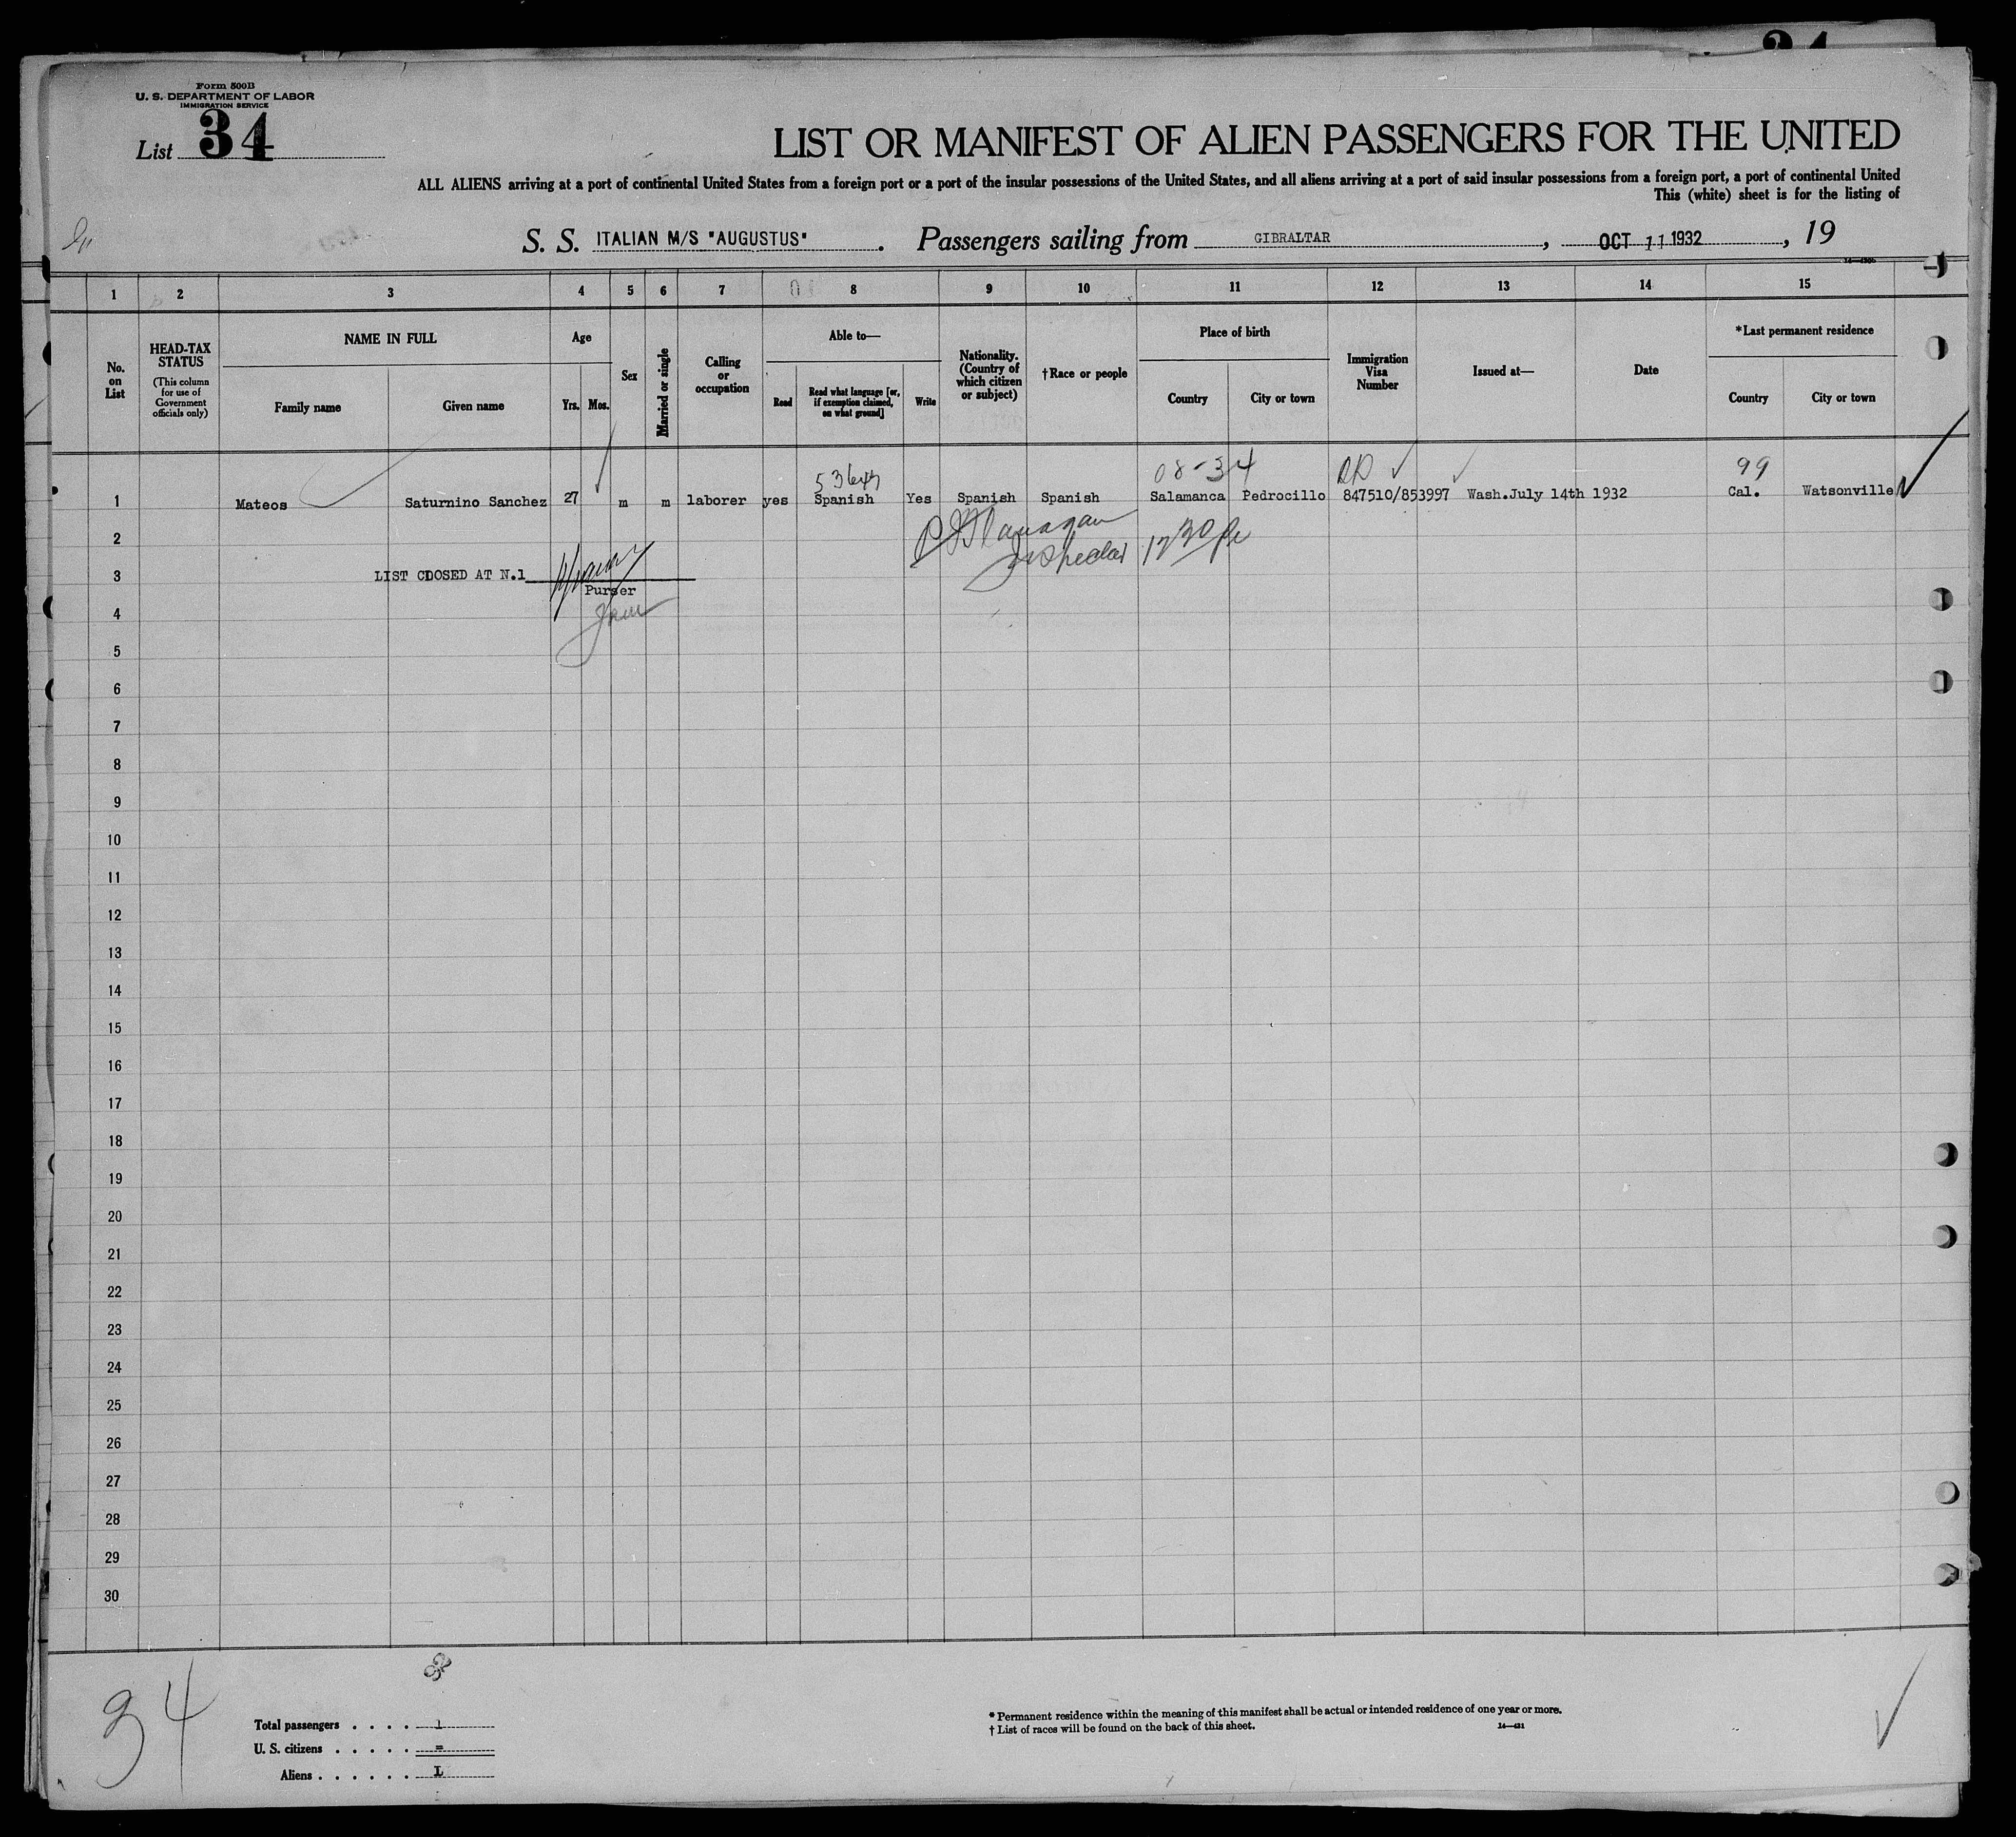 34
Form 500B
U. S. DEPARTMENT OF LABOR
IMMIGRATION SERVICE
List 34
LIST OR MANIFEST OF ALIEN PASSENGERS FOR THE UNITED
ALL ALIENS arriving at a port of continental United States from a foreign port or a port of the insular possessions of the United States, and all aliens arriving at a port of said insular possessions from a foreign port, a port of continental United
This (white) sheet is for the listing of
S. S. ITALIAN M/S "AUGUSTUS". Passengers sailing from GIBRALTAR, OCT 11 1932, 19
14—430b
1 2 3 4 5 6 7 8 9 10 11 12 13 14 15
No. on List
HEAD-TAX STATUS
(This column for use of Government officials only)
NAME IN FULL
Family name Given name
Age
Yrs. Mos.
Sex
Married or single
Calling or occupation
Able to—
Read Read what language [or, if exemption claimed, on what ground] Write
Nationality. (Country of which citizen or subject)
†Race or people
Place of birth
Country City or town
Immigration Visa Number
Issued at—
Date
*Last permanent residence
Country City or town
08-34 99
1 Mateos Saturnino Sanchez 27 m m laborer yes Spanish Yes Spanish Spanish Salamanca Pedrocillo 847510/853997 Wash. July 14th 1932 Cal. Watsonville
2
3 LIST CLOSED AT N.1
Purser
4
5
6
7
8
9
10
11
12
13
14
15
16
17
18
19
20
21
22
23
24
25
26
27
28
29
30
34
Total passengers . . . . 1
U. S. citizens . . . . . =
Aliens . . . . . . 1
* Permanent residence within the meaning of this manifest shall be actual or intended residence of one year or more.
† List of races will be found on the back of this sheet.
14—431